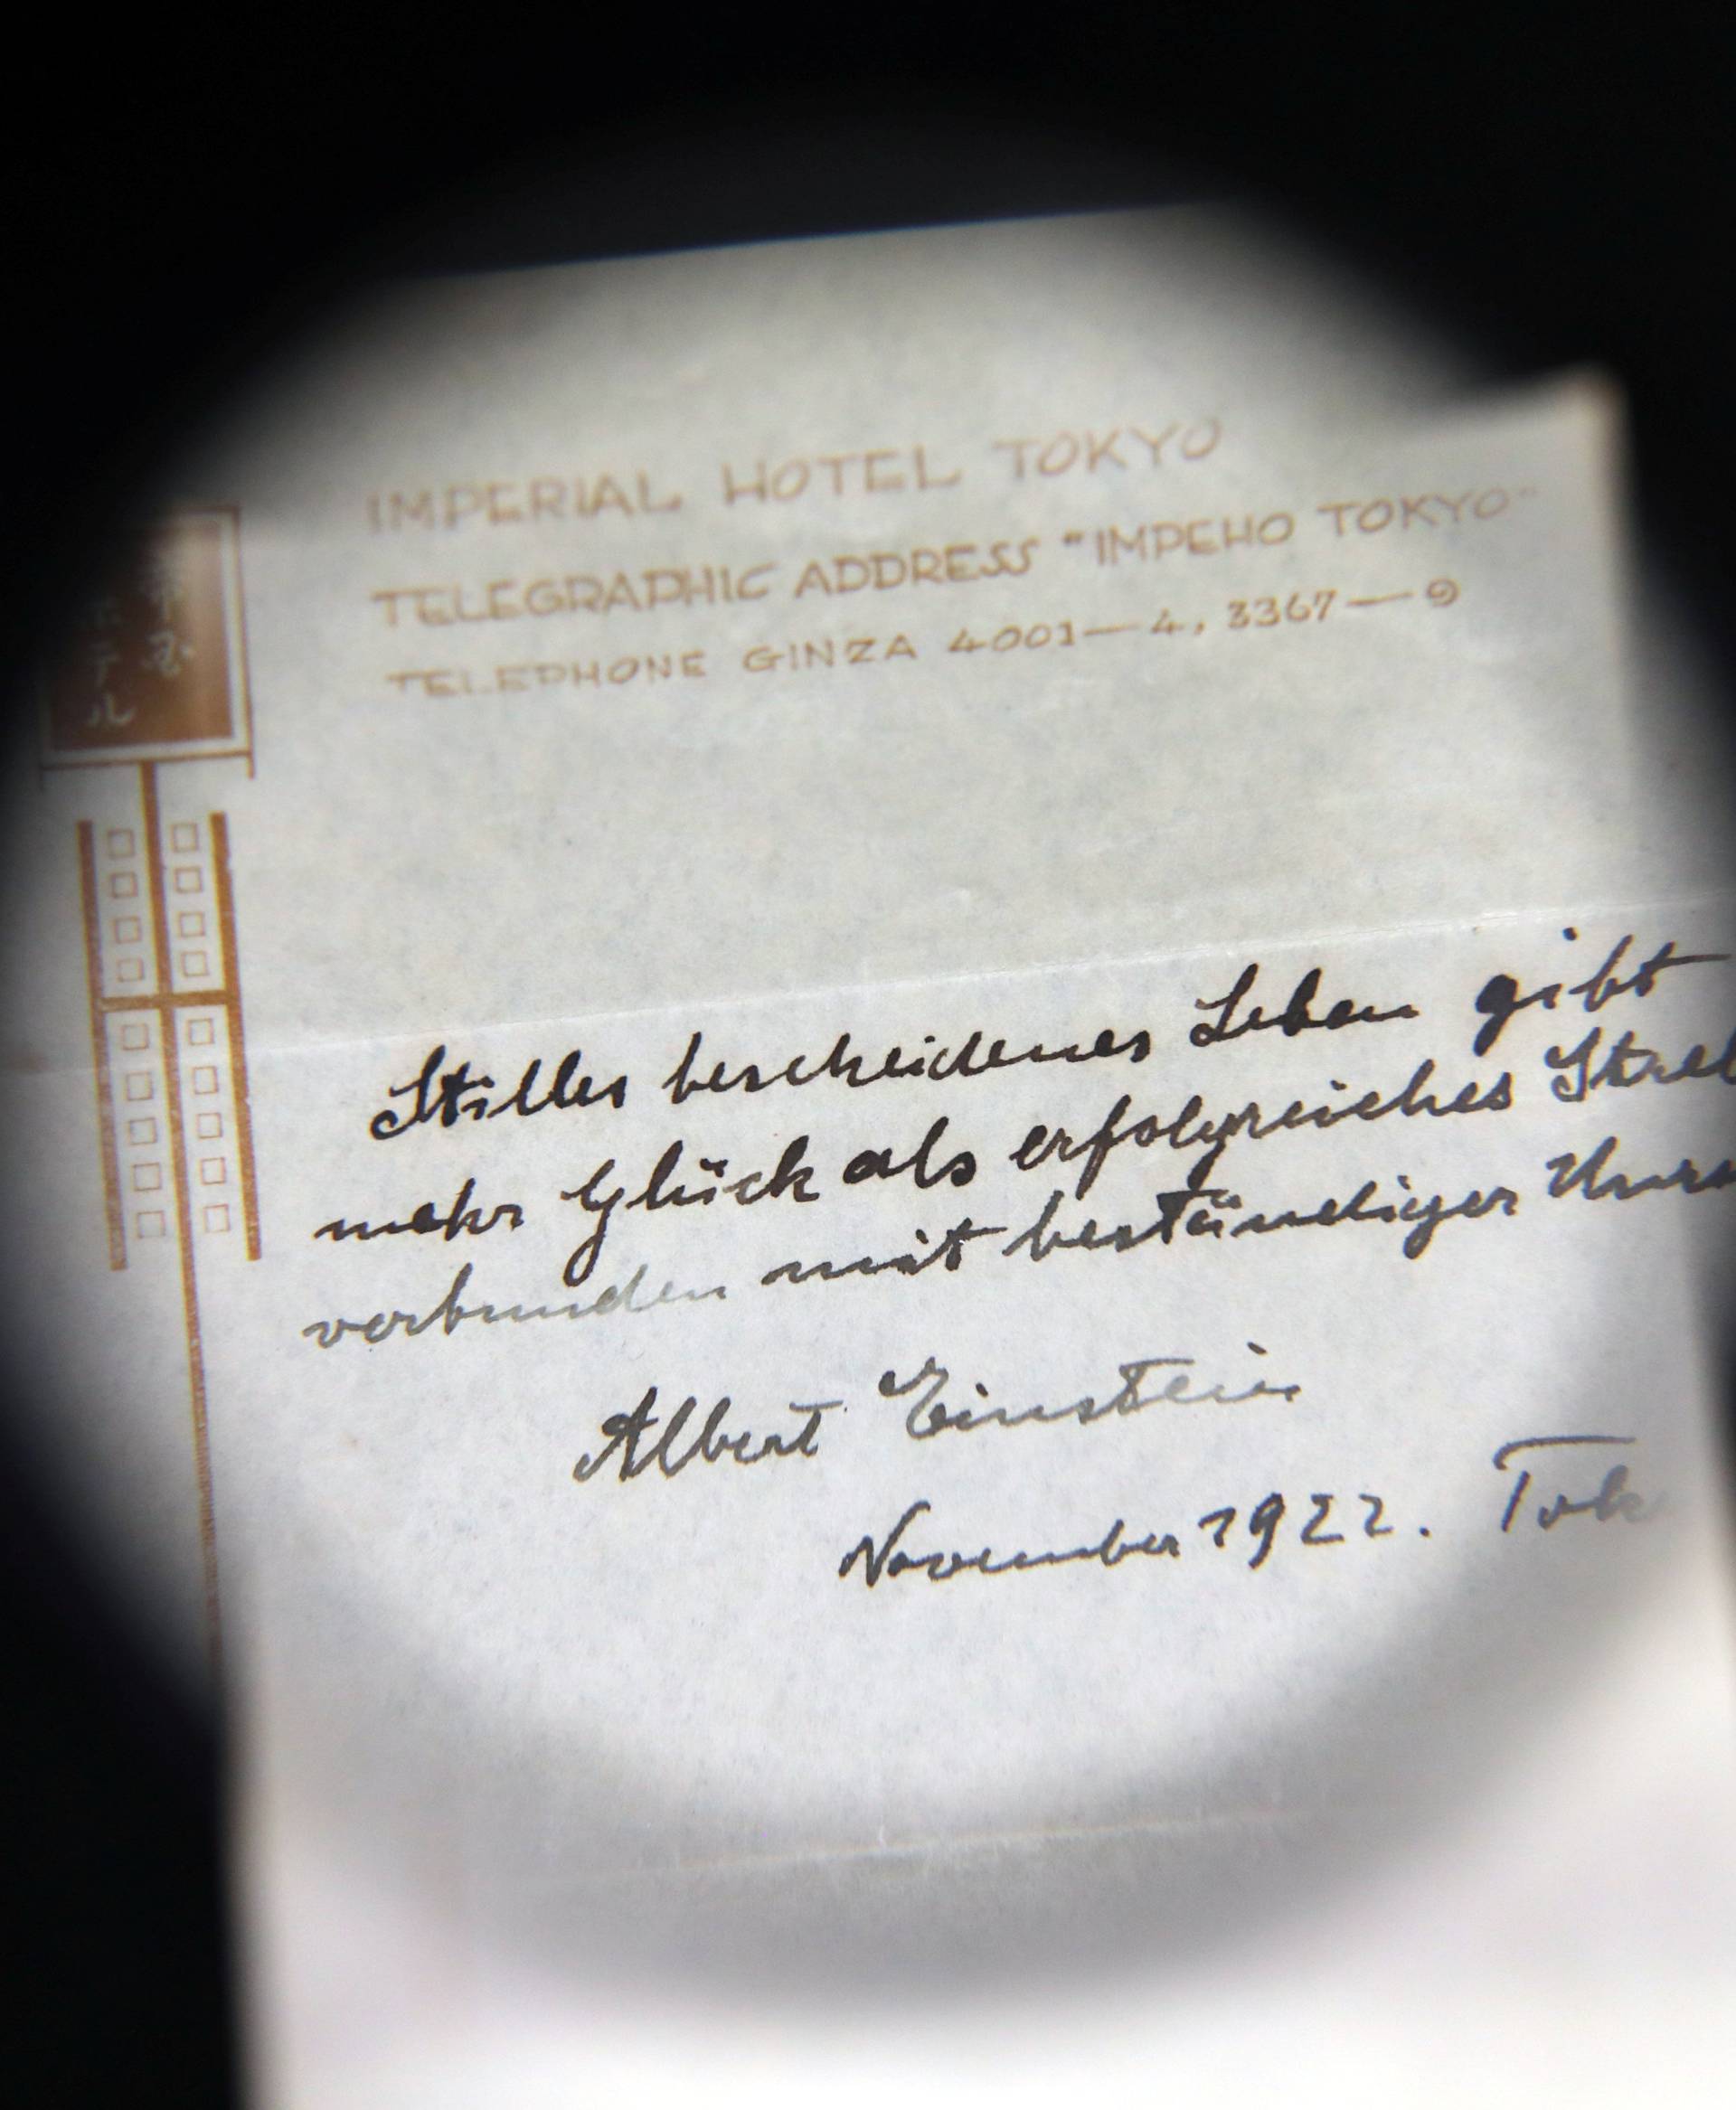 IMPERIAL HOTEL TOKYO
TELEGRAPHIC ADDRESS "IMPEHO TOKYO"
TELEPHONE GINZA 4001—4, 3367—9
テル
Stilles bescheidenes Leben gibt
mehr Glück als erfolgreiches Streb
verbunden mit beständiger Unru
Albert Einstein
November 1922. Tok